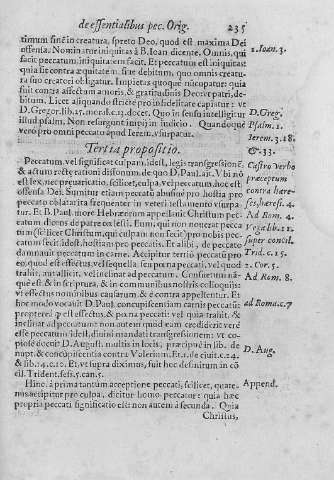 de essentialibus pec. Orig. 235
timum finē in creatura, spreto Deo, quod est maxima Dei
offensa. Nominatur iniquitas à B. Ioan dicente, Omnis, qui
facit peccatum, iniquitatem facit. Et peccatum est iniquitas:
quia fit contra æquitatem, siue debitum, quo omnis creatu-
ra suo subditur creatori. Impietas quoque nūcupatur: quia
fuit contra affectum amoris, & gratitudinis Deo et patri, de-
bitum. Licet aliquando strictè pro infidelitate capiatur: vt
D. Gregor. lib. 25. moral. c. 12. docet. Quo in sensu intelligitur
illud psalm. Non resurgunt impij in iudicio. Quandoque
vero pro omni peccato apud Ierem. vsurpatur.
1. Ioan. 3.
D. Greg.
Psalm. 1.
Ierem. 3. 18.
& 33.
Tertia propositio.
Peccatum, vel significat culpam, idest, legis transgressionē,
& actum rectę rationi dissonum, de quo D. Paul. ait: Vbi nō
est lex, nec pręuaricatio, scilicet, culpa, vel peccatum, hoc est
offensa Dei. Sumitur etiam peccatū abusiuè pro hostia pro
peccato oblata: ita frequenter in veteri testamento vsurpa-
tur. Et B. Paul. more Hebræorum appellauit Christum pec-
catum dicens de patre cœlesti. Eum, qui non nouerat pecca
tum (scilicet Christum, qui culpam non fecit) pro nobis pec-
catum fecit: idest, hostiam pro peccatis. Et alibi, de peccato
damnauit peccatum in carne. Accipitur tertiò peccatū pro
eo, quod est effectus, vel sequela, seu pœna peccati, vel quod
trahit, aut allicit, vel inclinat ad peccatum: Consuetum nā-
que est, & in scriptura, & in communibus nostris colloquijs:
vt effectus nominibus causarum, & è contra appellentur. Et
hoc modo vocauit D. Paul. concupiscentiam carnis peccatū:
propterea q̃ est effectus, & pœna peccati: vel quia trahit, &
inclinat ad peccatum: non autem quod eam crediderit verè
esse peccatum idest, diuini mandati transgressionem: vt co-
piosè docuit D. August. multis in locis, præcipuè in lib. de
nupt. & concupiscentia contra Volerium. Et. 1. de ciuit. c. 24.
& lib. 14. c. 10. Et, vt supra diximus, fuit hoc definitum in cō
cil. Trident. sess. 5. can. 5.
Castro verbo
præceptum
contra hære-
ses, hæresi. 4.
Ad Rom. 4.
Vega lib. 11.
super concil.
Trid. c. 15.
2. Cor. 5.
Ad Rom. 8.
ad Roma. c. 7
D. Aug.
Hinc, à prima tantum acceptione peccati, scilicet, quate-
nus accipitur pro culpa, dicitur homo peccatur: quia hæc
propria peccati significatio est: non autem à secunda. Quia
Append.
Christus,